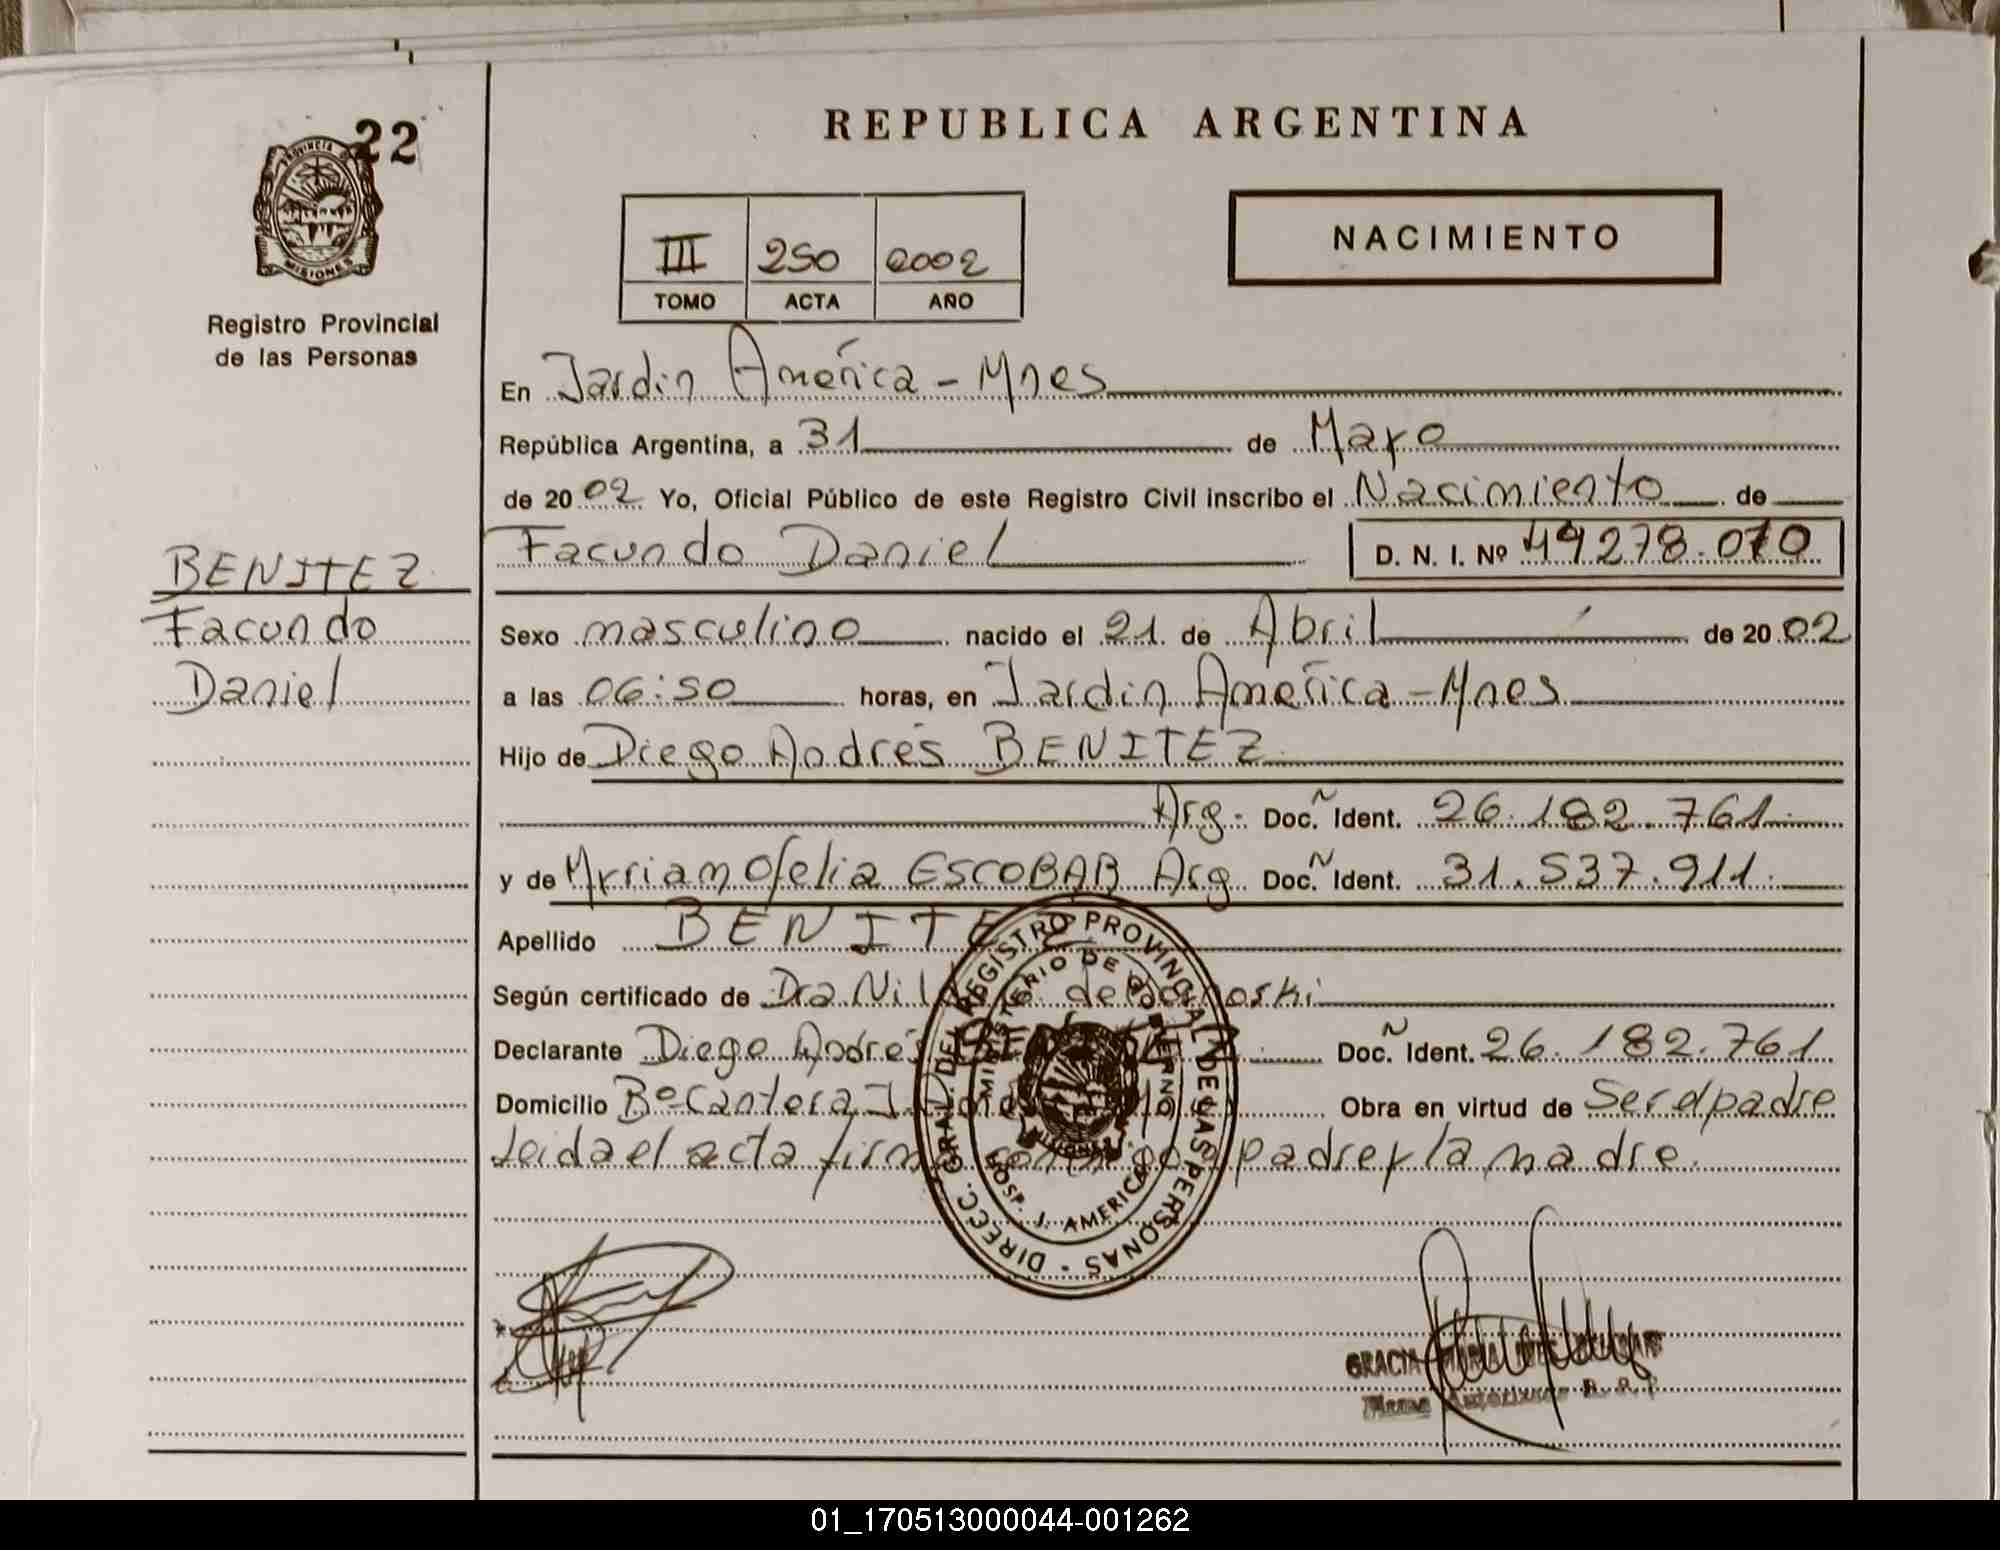 22
PROVINCIA DE
MISIONES
Registro Provincial
de las Personas
BENITEZ
Facundo
Daniel
REPUBLICA ARGENTINA
NACIMIENTO
III 250 2002
TOMO ACTA AÑO
En Jardin América - Mnes
República Argentina, a 31 de Mayo
de 2002 Yo, Oficial Público de este Registro Civil inscribo el Nacimiento de
Facundo Daniel D. N. I. Nº 44278.070
Sexo masculino nacido el 21 de Abril de 2002
a las 06:50 horas, en Jardin América - Mnes
Hijo de Diego Andrés BENITEZ
Arg. Doc. Ñ Ident. 26.182.761
y de Myriam Ofelia ESCOBAR Arg Doc. Ñ Ident. 31.537.911.
Apellido BENITEZ
Según certificado de Dra Nil de
Declarante Diego Andrés BENITEZ Doc. Ñ Ident. 26.182.761
Domicilio Bº Cantera Obra en virtud de Ser el padre
Leida el acta firman padre y la madre.
DIRECC. GRAL. DEL REGISTRO PROVINCIAL DE LAS PERSONAS -
MINISTERIO DE GOBIERNO
HOSP. J. AMERICA
MISIONES
GRACIA MARIA
01_170513000044-001262